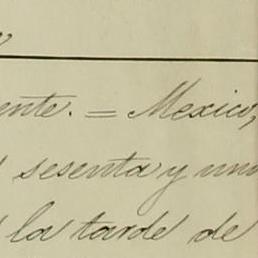 ente. = Mexico,
sesenta y un
la tarde de